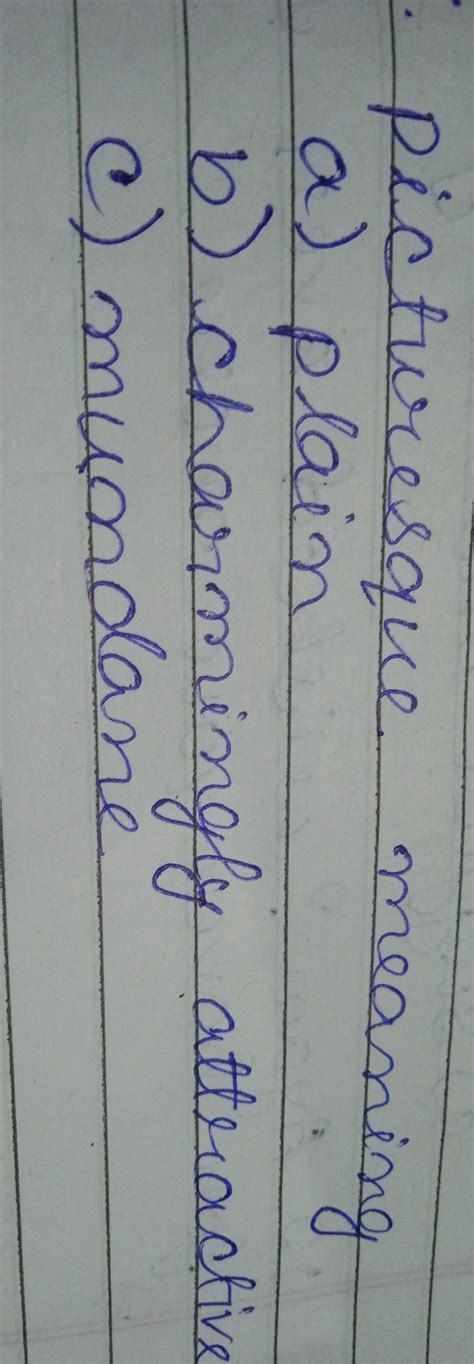 picturesque meaning
a) plain
b) charmingly attractive
c) mundane